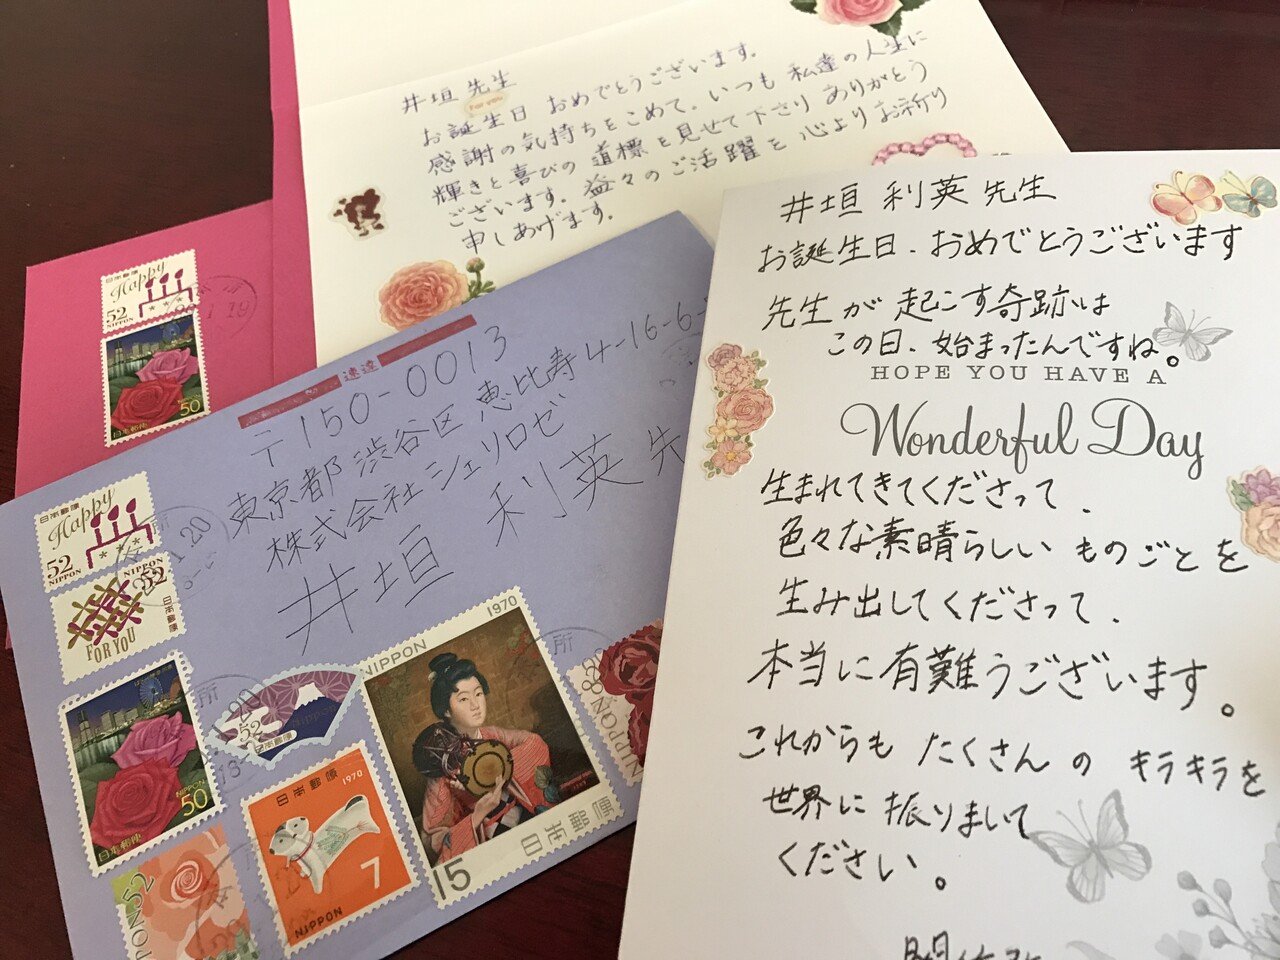 井垣 先生
For you
お誕生日 おめでとうございます。
感謝の気持ちをこめて、いつも 私達の人生に
輝きと喜びの 道標を見せて下さり ありがとう
ございます。益々のご活躍を 心よりお祈り
申しあげます。
井垣 利英 先生
お誕生日、おめでとうございます
先生が 起こす奇跡は
この日、始まったんですね。
HOPE YOU HAVE A
Wonderful Day
生まれてきてくださって、
色々な素晴らしい ものごとを
生み出してくださって、
本当に有難うございます。
これからも たくさんの キラキラを
世界に 振りまいて
ください。
速達
〒150-0013
東京都 渋谷区 恵比寿 4-16-6-
株式会社 シェリロゼ
井垣 利英 先
日本郵便
Happy
52
NIPPON
50
日本郵便
日本郵便
Happy
52
NIPPON
52
日本郵便
FOR YOU
NIPPON
50
日本郵便
52
日本郵便
Nippon
NIPPON 1970
15
日本郵便
日本郵便 1970
7
NIPPON
NIPPON
NIPPON 52